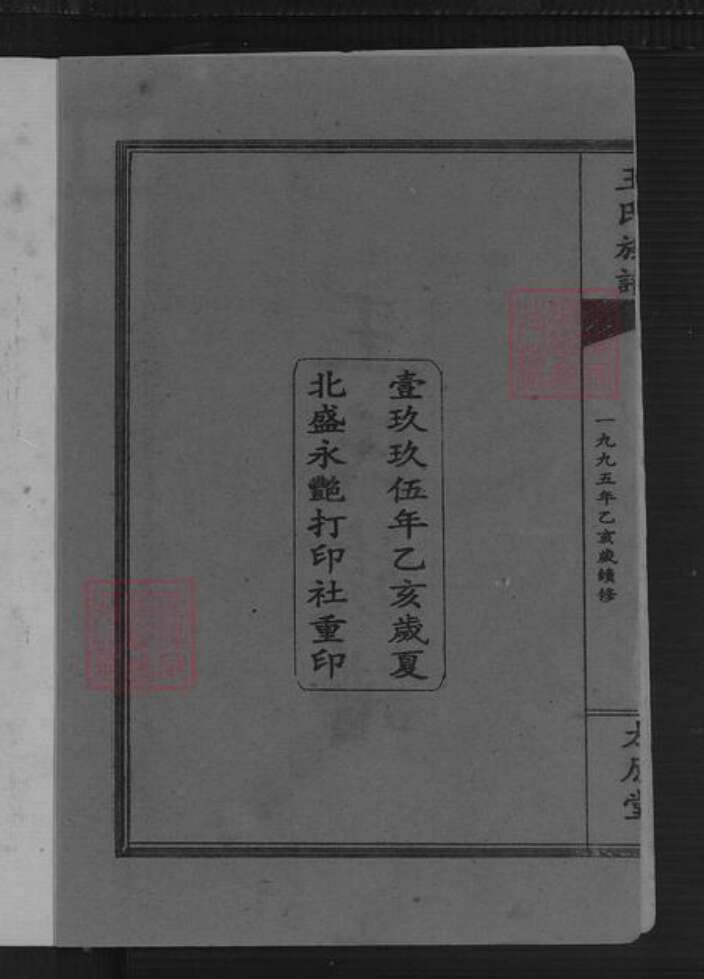 王氏族譜
一九九五年乙亥歲續修
太原堂
壹玖玖伍年乙亥歲夏
北盛永艷打印社重印